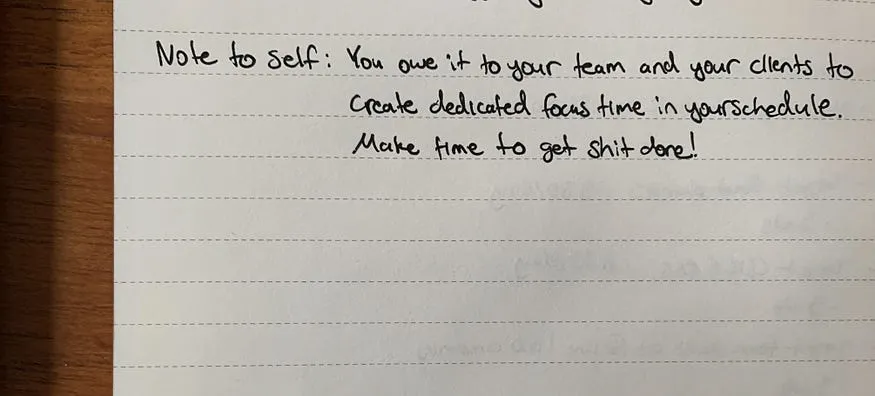 Note to self: You owe it to your team and your clients to
create dedicated focus time in your schedule.
Make time to get shit done!